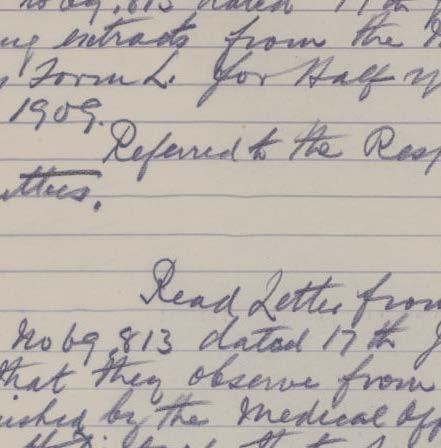 No 69,813 dated 17th
extracts from the
Form L. for Half y
1909.
Referred to the Resp
ittees.
Read Letter from
No 69,813 dated 17th J
that they observe from
ished by the Medical Off